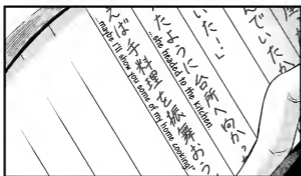 んでいたか
いた…」
たように台所へ向かっ
...she headed to the kitchen.
えば手料理を振舞おう
...maybe I'll show you some of my home cooking!"